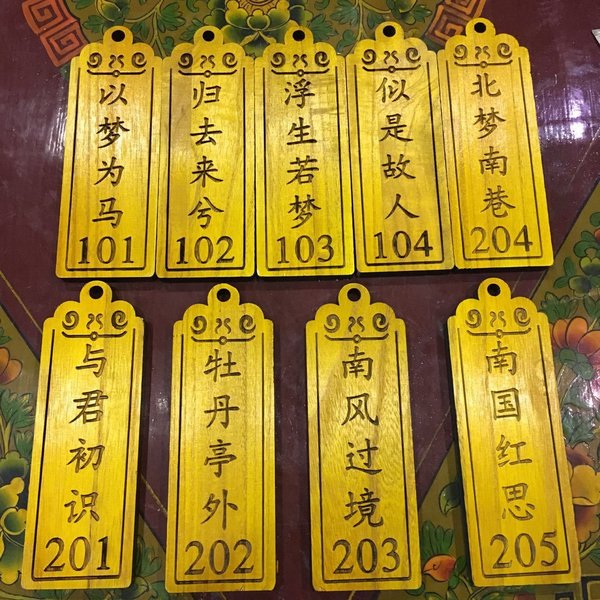 以梦为马
101
归去来兮
102
浮生若梦
103
似是故人
104
北梦南巷
204
与君初识
201
牡丹亭外
202
南风过境
203
南国红思
205